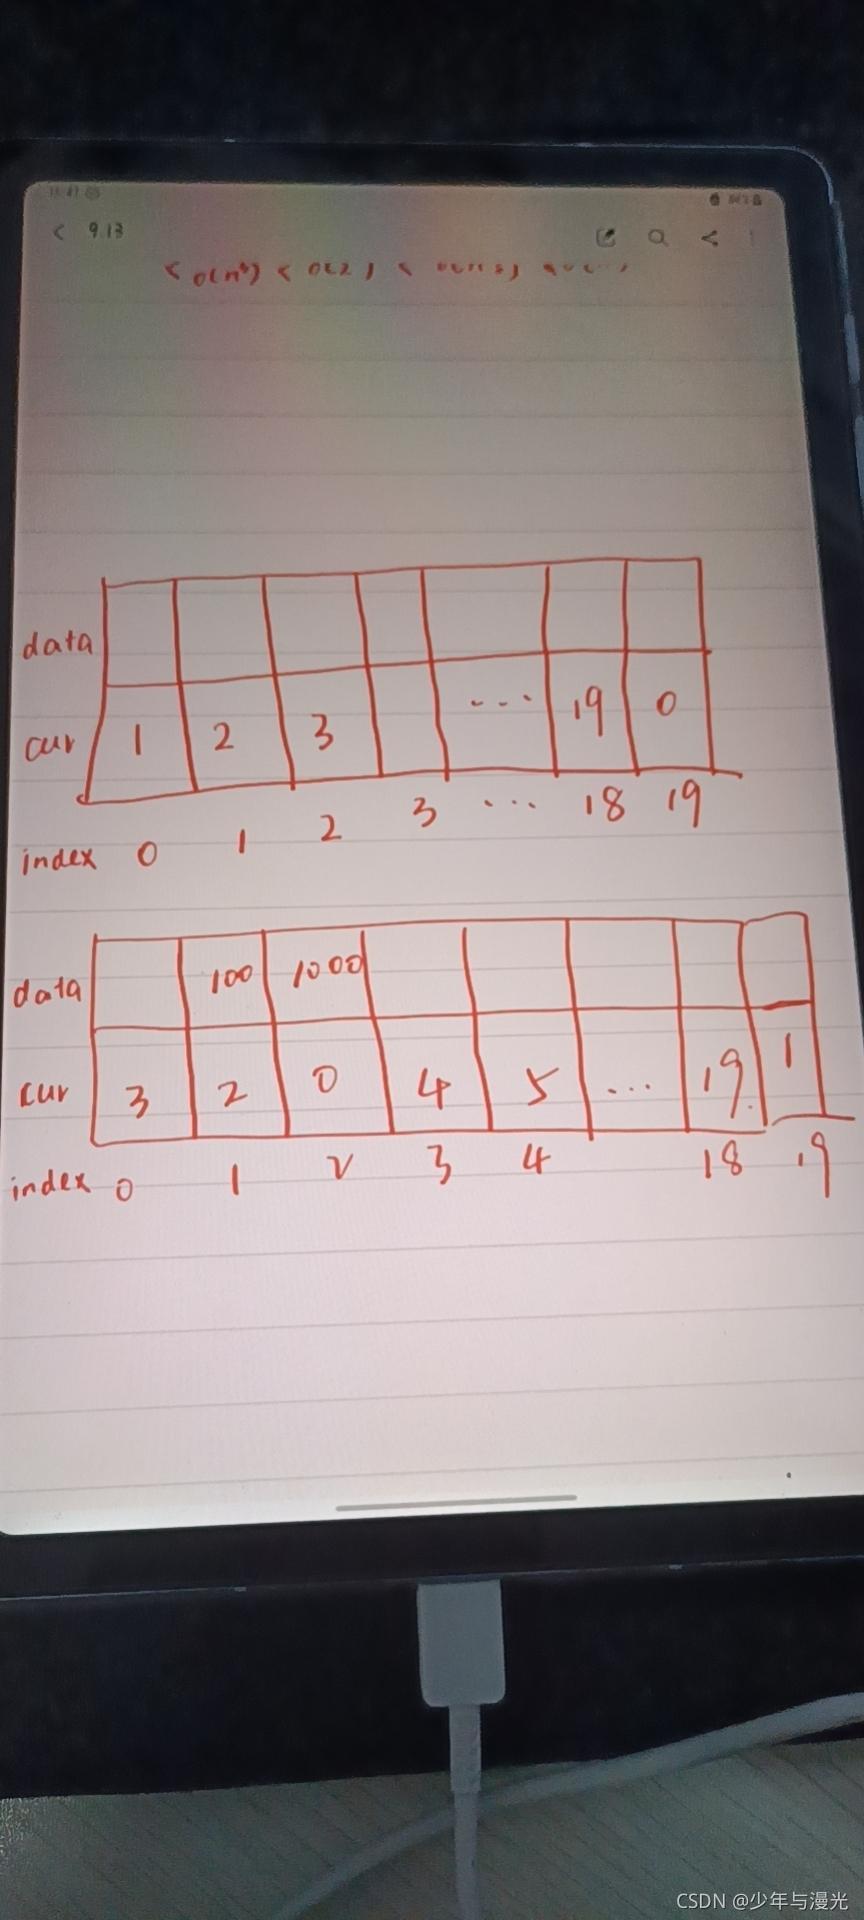 9.13
data
cur 1 2 3 ... 19 0
index 0 1 2 3 ... 18 19
data 100 1000
cur 3 2 0 4 5 ... 19 1
index 0 1 2 3 4 18 19
CSDN @少年与漫光